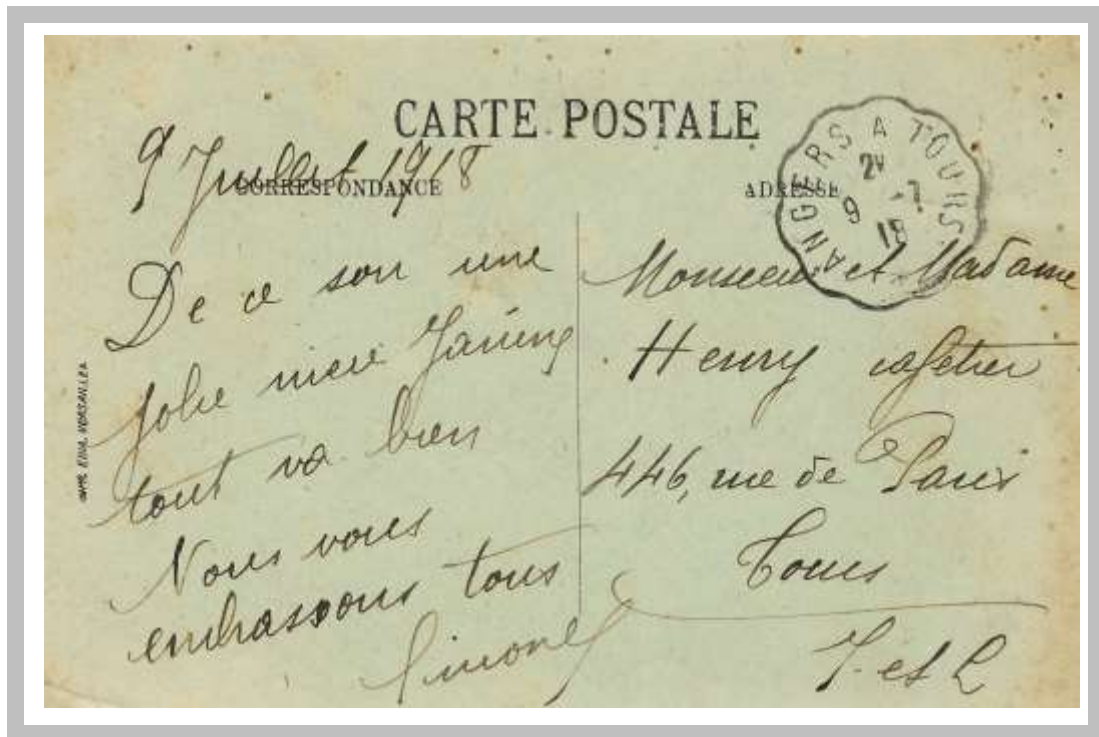 CARTE POSTALE
9 Juillet 1918
CORRESPONDANCE
ADRESSE
ANGERS A TOURS
9 -7
18
De ce son une
Jolie
tout va bien
Nous vous
embrassons tous
Simone
Monsieur et Madame
Henry cafetier
446, rue de Paris
Tours
I. et L